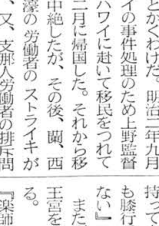 とかくわけた。明治二年九月
イの事件処理のため上野監督
ハワイに赴いて移民をつれて
二月に帰国した。それから移
中絶したが、その後、蘭、西
濠の労働者のストライキが
、又、支那人労働者の排斥問
持って
も膝行
ない』
また
王宮を
る。
『薬師